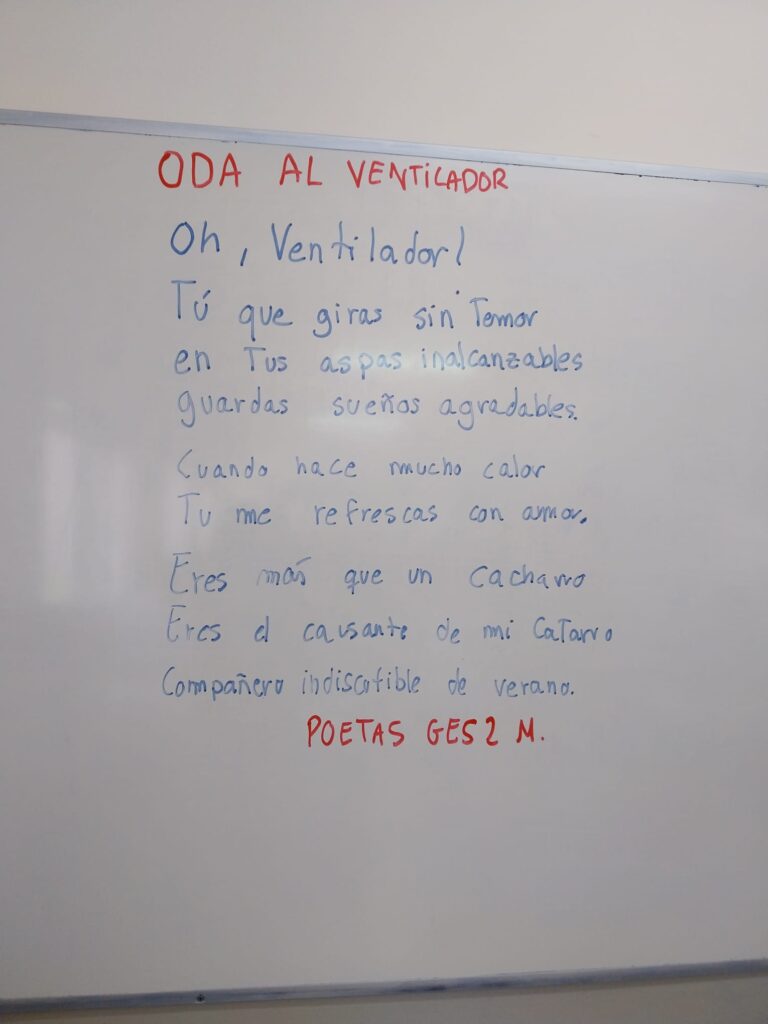 ODA AL VENTILADOR
Oh, Ventilador!
Tú que giras sin Temor
en Tus aspas inalcanzables
guardas sueños agradables.
Cuando hace mucho calor
Tu me refrescas con amor.
Eres más que un cacharro
Eres el causante de mi caTarro
Compañero indiscutible de verano.
POETAS GES2 M.